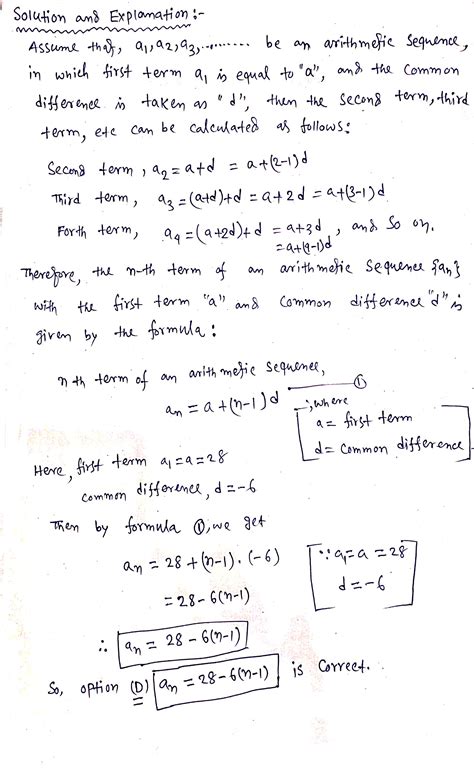 Solution and Explanation:-
Assume that, a₁, a₂, a₃, .......... be an arithmetic sequence,
in which first term a₁ is equal to "a", and the common
difference is taken as "d", then the second term, third
term, etc can be calculated as follows:
Second term, a₂ = a+d = a+(2-1)d
Third term, a₃ = (a+d)+d = a+2d = a+(3-1)d
Forth term, a₄ = (a+2d)+d = a+3d, and so on.
= a+(4-1)d
Therefore, the n-th term of an arithmetic sequence {an}
with the first term "a" and common difference "d" is
given by the formula:
nth term of an arithmetic sequence,
an = a+(n-1)d ——— ①
; where
a = first term
d = common difference
Here, first term a₁ = a = 28
common difference, d = -6
Then by formula ①, we get
an = 28 + (n-1)·(-6) [∵ a₁ = a = 28
= 28 - 6(n-1) d = -6]
∴ an = 28 - 6(n-1)
So, option (D) an = 28 - 6(n-1) is correct.